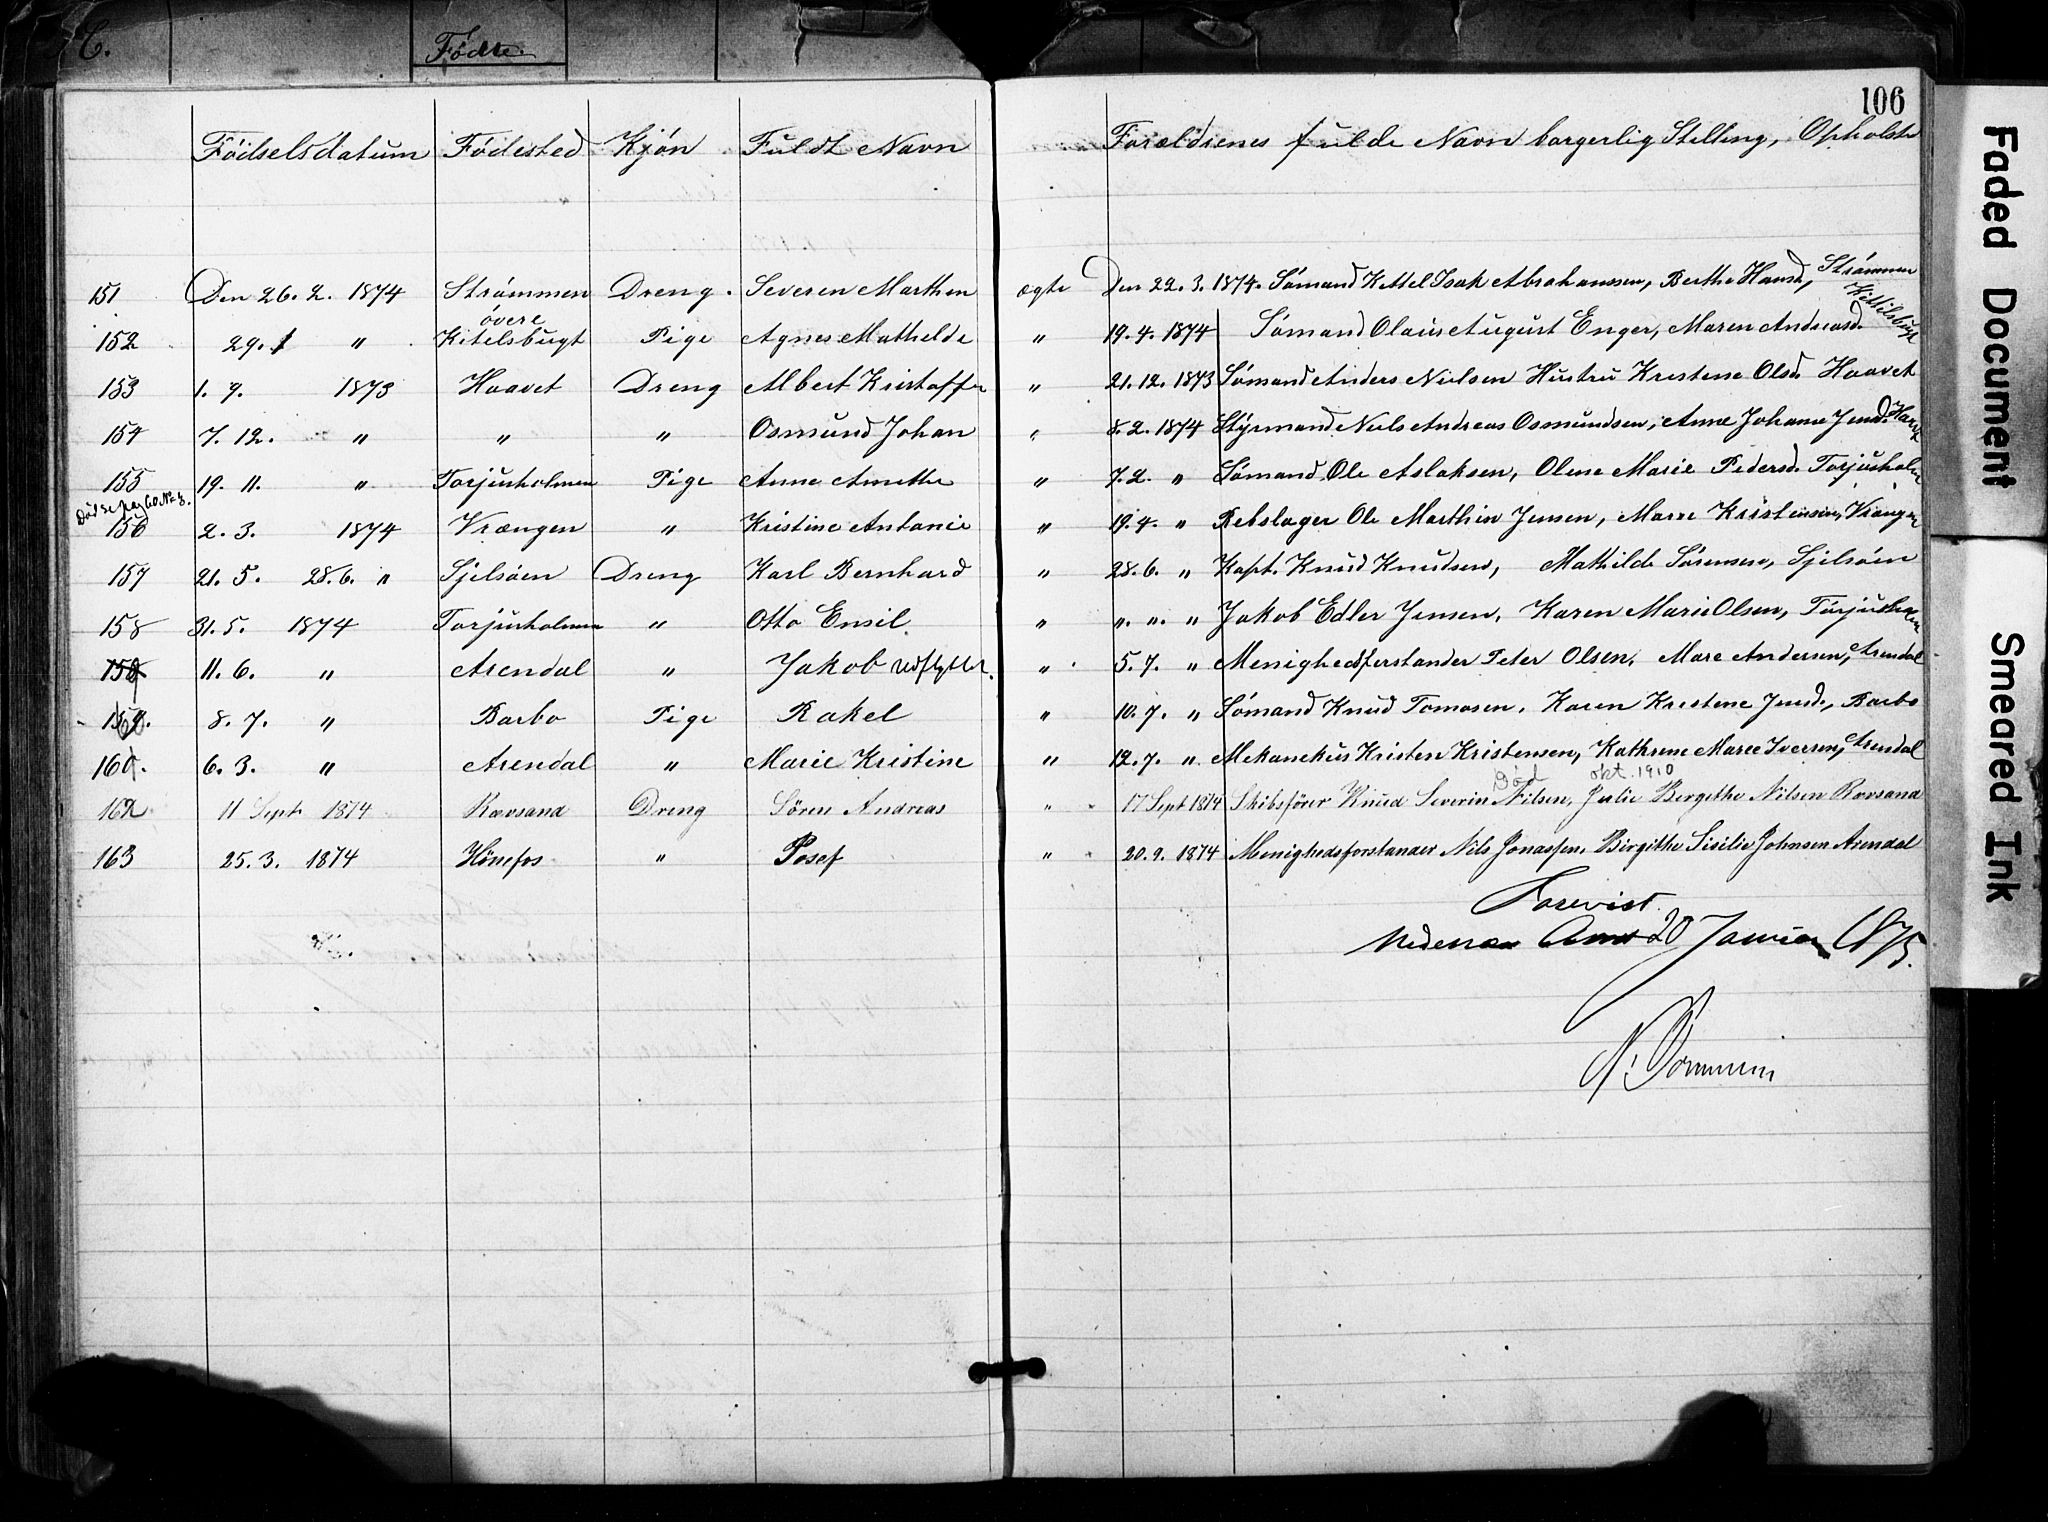 C.
Födte
106
Födselsdatum Födested Kjön Fuldt Navn Forældrenes fulde Navn borgerlig Stilling, Opholdst
151 Den 26. 2. 1874 Strömmen Dreng. Severen Marthin ægte Den 22. 3. 1874. Sömand Kettel Isak Abrahamssen, Berthe Hansd, Strömmen
152 29. 1 " övere Kitelsbugt Pige Agnes Mathilde " 19. 4. 1874 Sömand Olaus August Enger, Maren Andreasd. Kittilsbugt
153 1. 7. 1873 Haavet Dreng Albert Kristoffer " 21. 12. 1873 Sömand Anders Nielsen Hustru Kristene Olsd. Haavet
154 7. 12. " " " Osmund Johan " 8. 2. 1874 Styrmand Niels Andreas Osmundsen, Anne Johanne Jensd. Havet
155 19. 11. " Torjusholmen Pige Anne Amethe " 7. 2. " Sömand Ole Aslaksen, Oline Marie Pedersd. Torjusholm
Död se pag 60 No 8.
156 2. 3. 1874 Vrængen " Kristine Antonie " 19. 4. " Rebslager Ole Marthin Jensen, Maren Kristensen, Vrængen
157 21. 5. 28. 6. " Sjelsöen Dreng Karl Bernhard " 28. 6. " Kapt. Knud Knudsen, Mathilde Sörensen, Sjelsöen
158 31. 5. 1874 Torjusholmen " Otto Emil " ". ". " Jakob Edler Jensen, Karen Marie Olsen, Torjusholmen
159 11. 6. " Arendal " Jakob udflyttet. " 5. 7. " Menighedsforstander Peter Olsen, Mare Andersen, Arendal
160. 8. 7. " Barbo Pige Rakel " 10. 7. " Sömand Knud Tomasen, Karen Kristene Jensd., Barbo
161. 6. 3. " Arendal " Marie Kristine " 12. 7. " Mekanikus Kristen Kristensen, Kathrine Marie Iversen, Arendal
Död okt. 1910
162 11 Sept 1874 Rævsand Dreng Sören Andreas " 17 Sept 1874 Skibsförer Knud Severin Nilsen, Julie Bergithe Nilsen Rævsand
163 25. 3. 1874 Hönefos " Josef " 20. 9. 1874 Menighedsforstander Nils Jonassen, Birgithe Sisilie Johnsen Arendal
Forevist
Nedenæs Amt 20 Januar 1875.
Faded Document
Smeared Ink